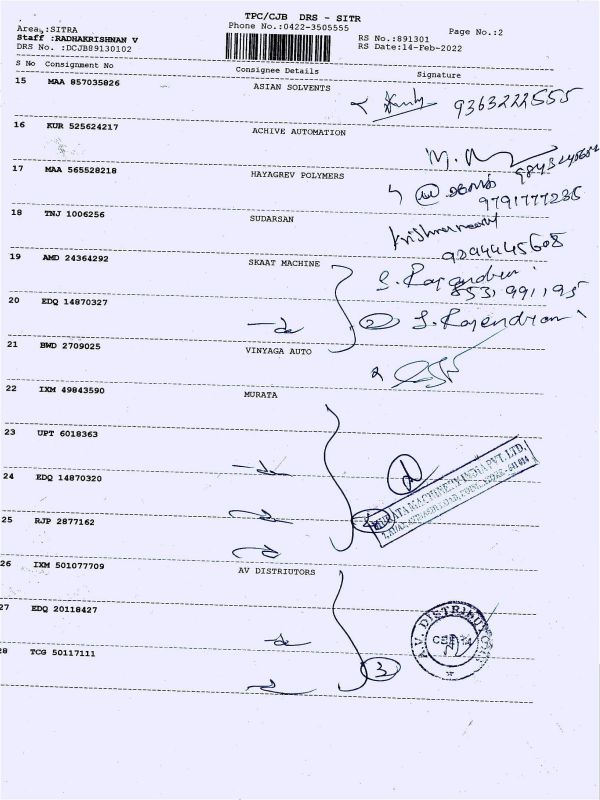 TPC/CJB DRS - SITR
Area :SITRA
Phone No.:0422-3505555
Page No.:2
Staff :RADHAKRISHNAN V
RS No.:891301
DRS No. :DCJB89130102
RS Date:14-Feb-2022
S No Consignment No Consignee Details Signature
15 MAA 857035826 ASIAN SOLVENTS
9363222555
16 KUR 525624217 ACHIVE AUTOMATION
17 MAA 565528218 HAYAGREV POLYMERS
9791777235
18 TNJ 1006256 SUDARSAN
Krishnamoorthy
9294445608
19 AMD 24364292 SKAAT MACHINE
S. Rajendran
8531991195
20 EDQ 14870327
2 S. Rajendran
21 BWD 2709025 VINYAGA AUTO
22 IXM 49843590 MURATA
23 UPT 6018363
24 EDQ 14870320
MURATA MACHINERY INDIA PVT. LTD.
25 RJP 2877162
26 IXM 501077709 AV DISTRIUTORS
27 EDQ 20118427
A.V. DISTRIBUTORS
28 TCG 50117111
3